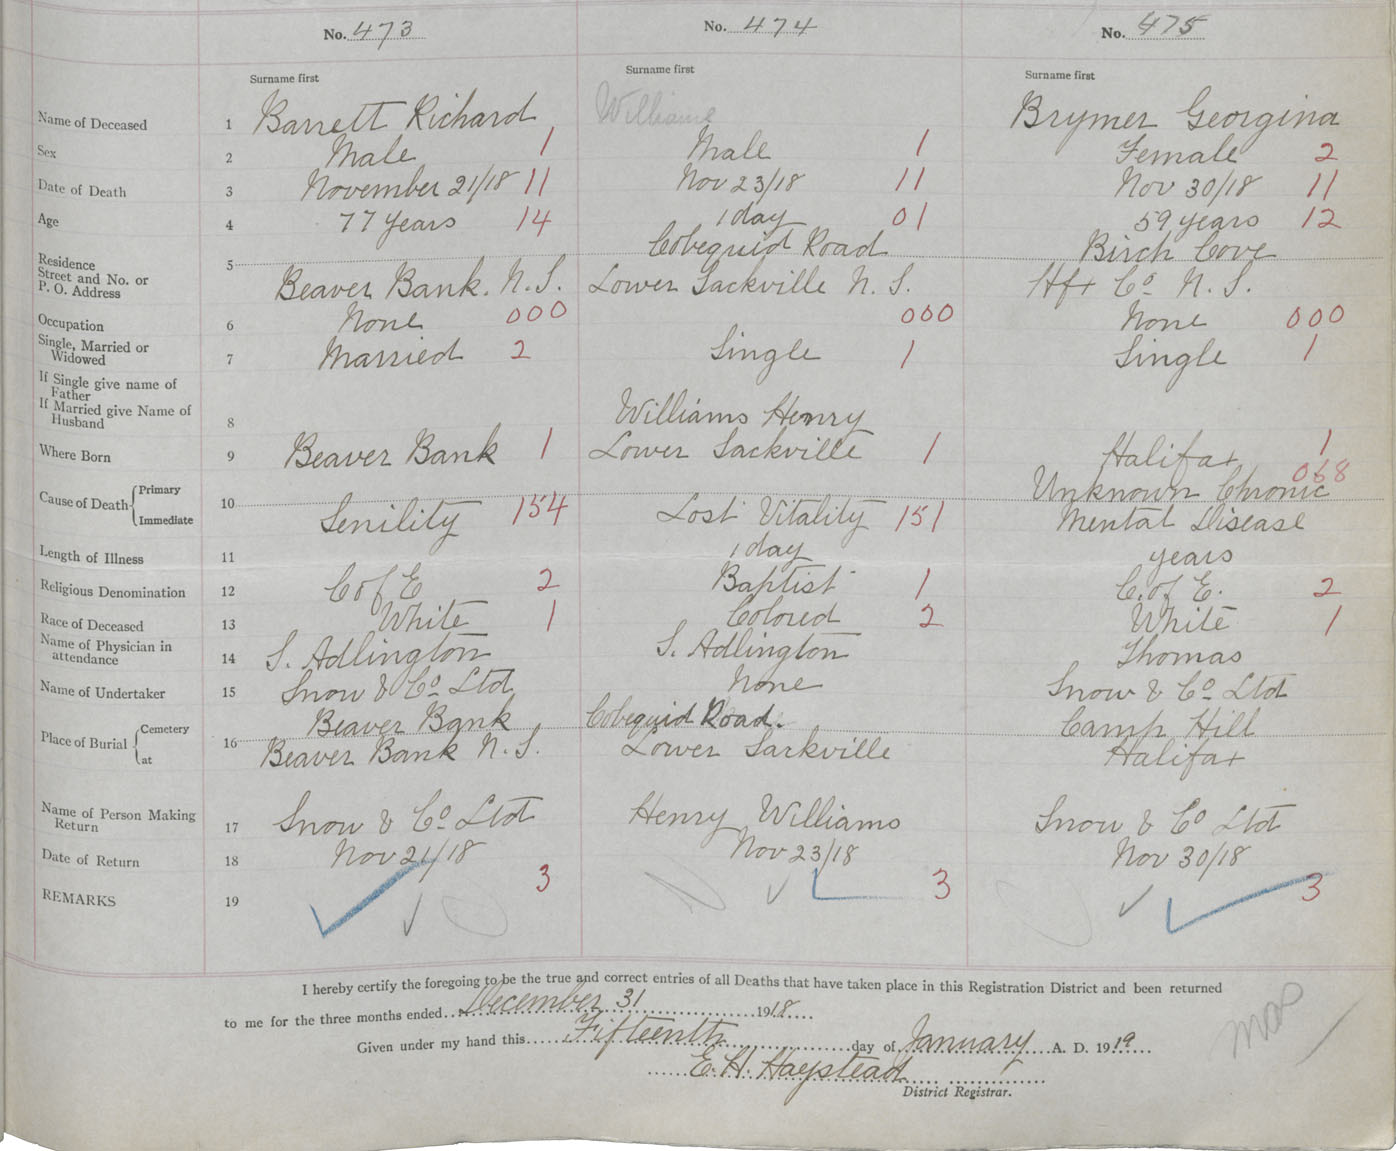 No. 473 No. 474 No. 475
Surname first Surname first Surname first
Name of Deceased 1 Barrett Richard Williams Brymer Georgina
Sex 2 Male 1 Male 1 Female 2
Date of Death 3 November 21/18 11 Nov 23/18 11 Nov 30/18 11
Age 4 77 years 14 1 day 01 59 years 12
Cobequid Road Birch Cove
Residence
Street and No. or
P. O. Address 5 Beaver Bank. N. S. Lower Sackville N. S. Hfx Co. N. S.
Occupation 6 None 000 000 None 000
Single, Married or
Widowed 7 Married 2 Single 1 Single 1
If Single give name of
Father
If Married give Name of
Husband 8 Williams Henry
Where Born 9 Beaver Bank 1 Lower Sackville 1 Halifax 1
068
Cause of Death { Primary Unknown Chronic
10
Immediate Senility 154 Lost Vitality 151 Mental Disease
Length of Illness 11 1 day years
Religious Denomination 12 C of E 2 Baptist 1 C. of E. 2
Race of Deceased 13 White 1 Colored 2 White 1
Name of Physician in
attendance 14 S. Adlington S. Adlington Thomas
Name of Undertaker 15 Snow & Co. Ltd None Snow & Co. Ltd
Place of Burial { Cemetery Beaver Bank Cobequid Road. Camp Hill
at 16 Beaver Bank N. S. Lower Sackville Halifax
Name of Person Making
Return 17 Snow & Co. Ltd Henry Williams Snow & Co. Ltd
Date of Return 18 Nov 21/18 Nov 23/18 Nov 30/18
3 3 3
REMARKS 19
I hereby certify the foregoing to be the true and correct entries of all Deaths that have taken place in this Registration District and been returned
to me for the three months ended December 31 1918
Given under my hand this Fifteenth day of January A. D. 1919
E. H. Haystead
District Registrar.